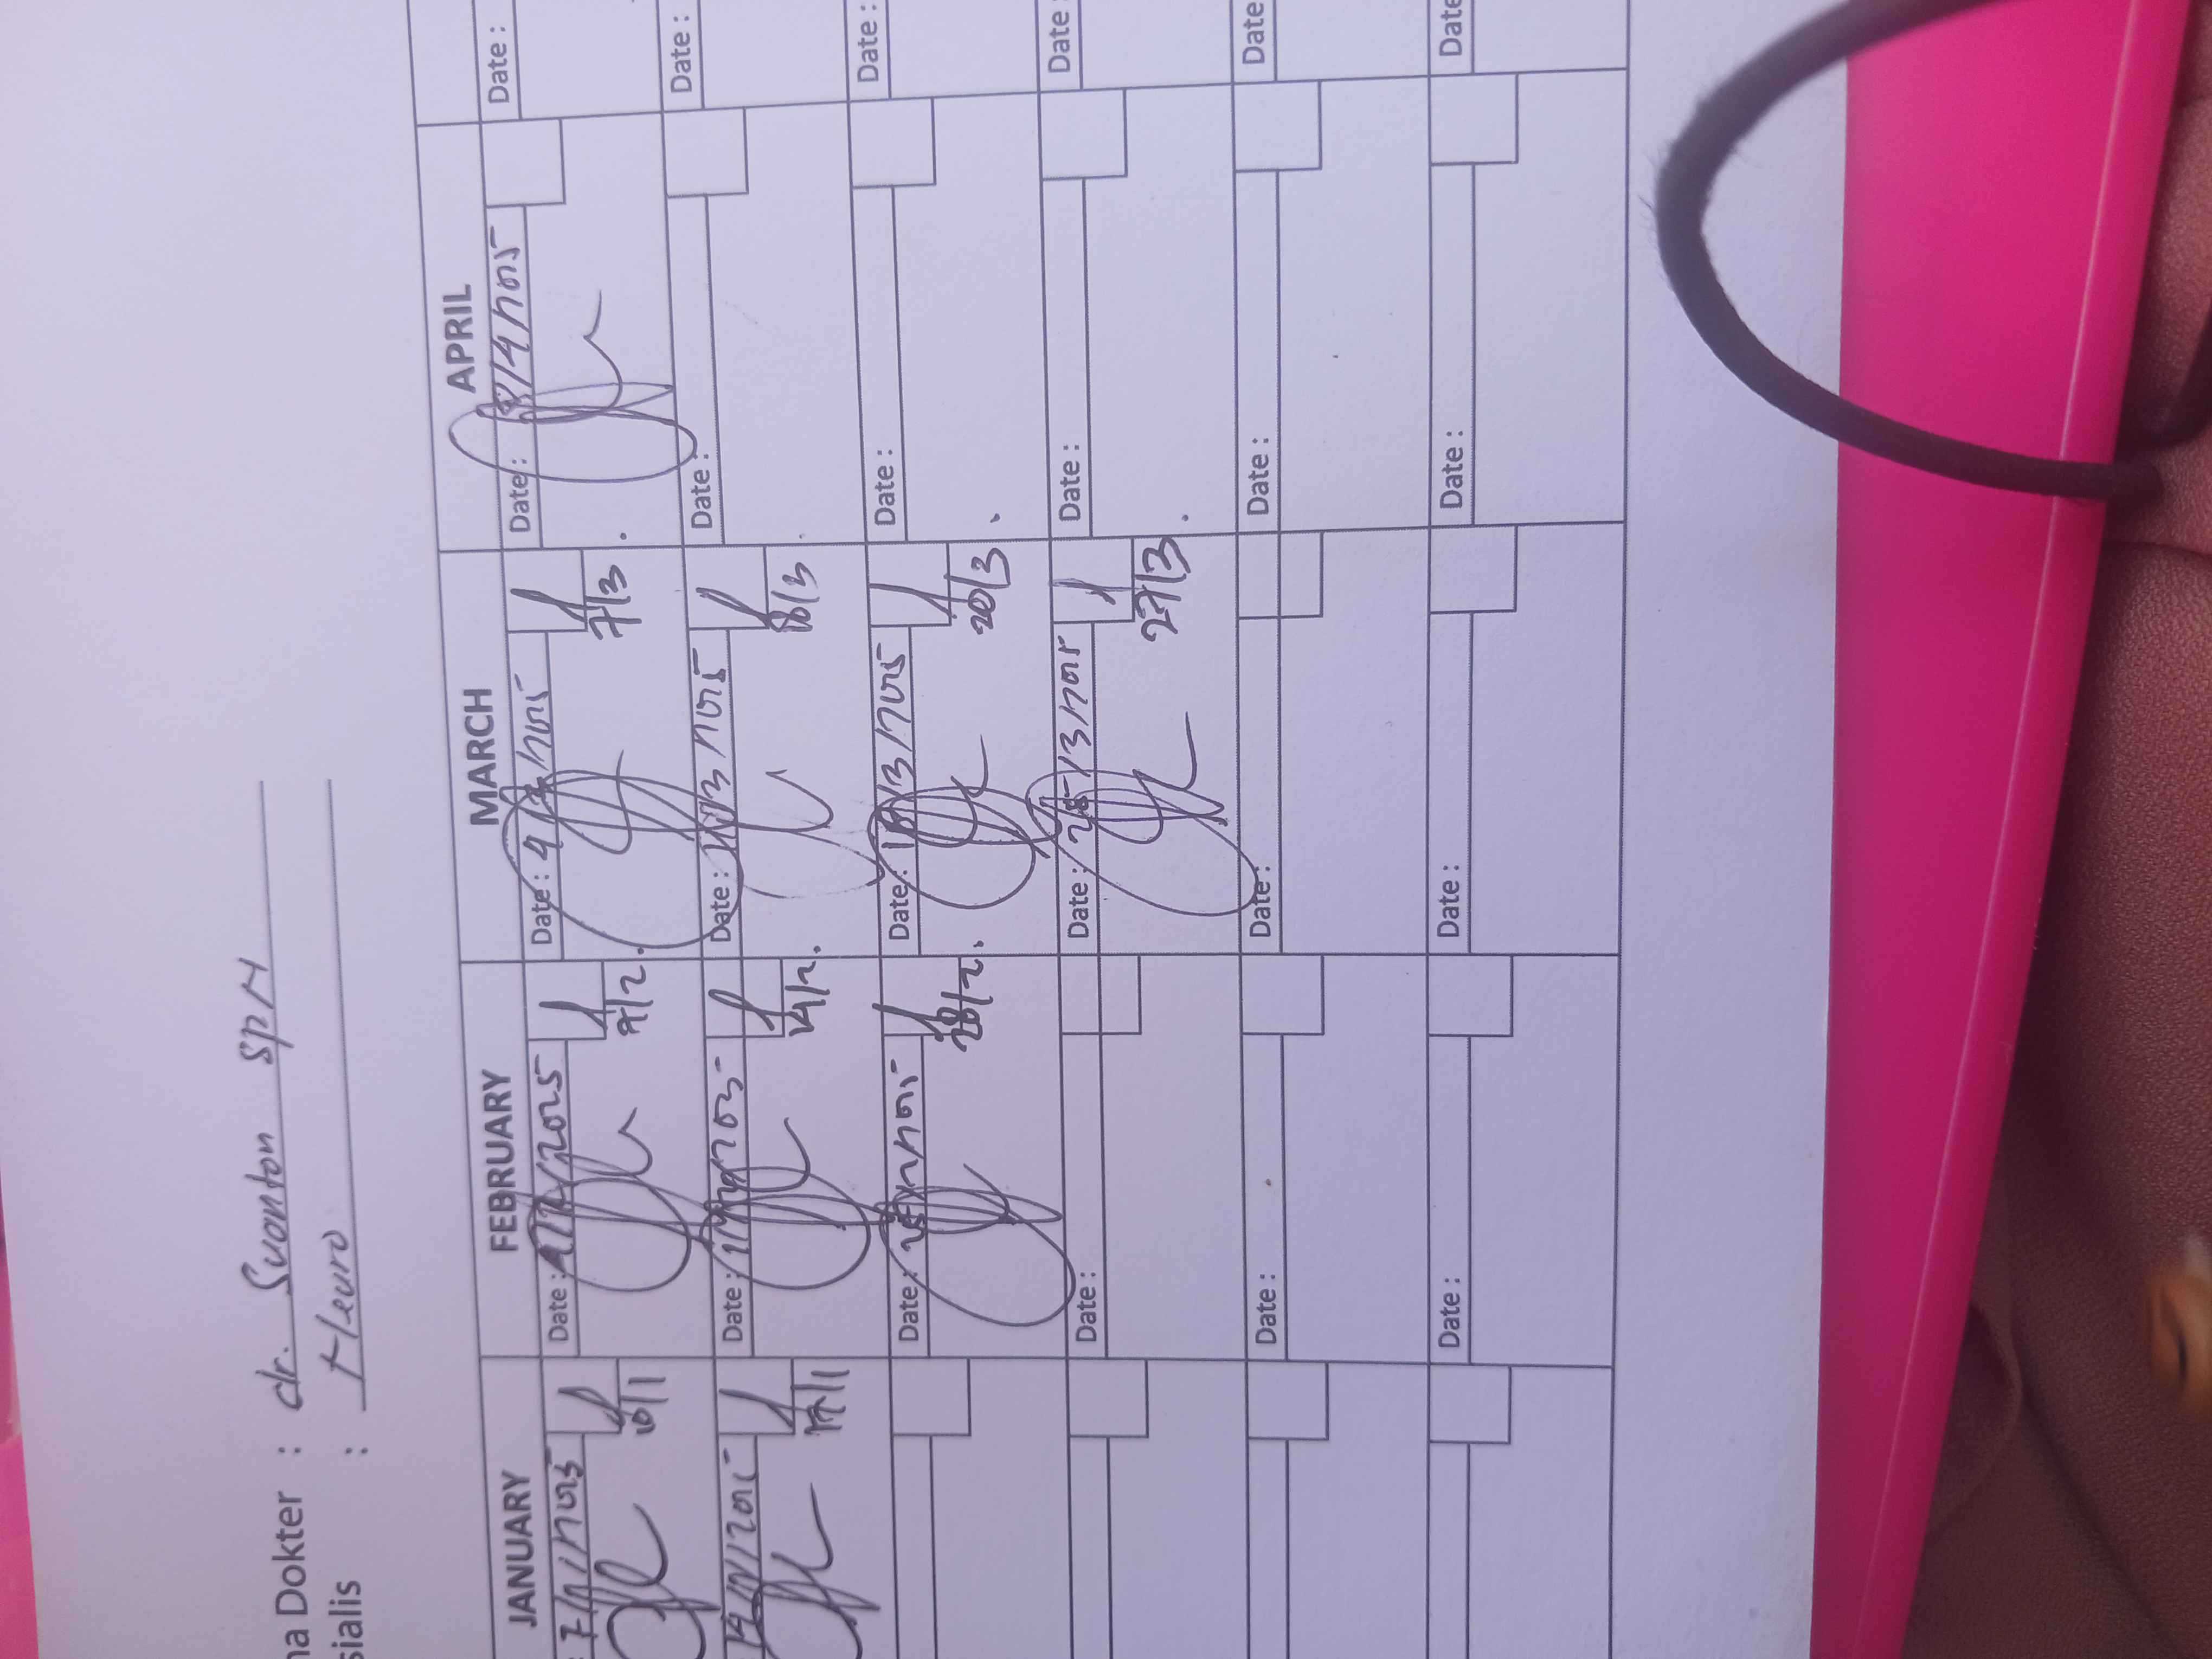 na Dokter : dr. Svanton SpN
sialis : Neuro
JANUARY FEBRUARY MARCH APRIL
7/1/2025 Date : 4/2/2025 Date : 4/3/2025 Date : 8/4/2025 Date :
10/1 7/2. 7/3 .
14/1/2025 Date : 11/2/2025 Date : 11/3/2025 Date : Date :
17/1 14/2. 18/3 .
Date : 25/2/2025 Date : 18/3/2025 Date : Date :
28/2. 20/3 .
Date : Date : 25/3/2025 Date : Date :
27/3 .
Date : Date : Date : Date
Date : Date : Date : Date